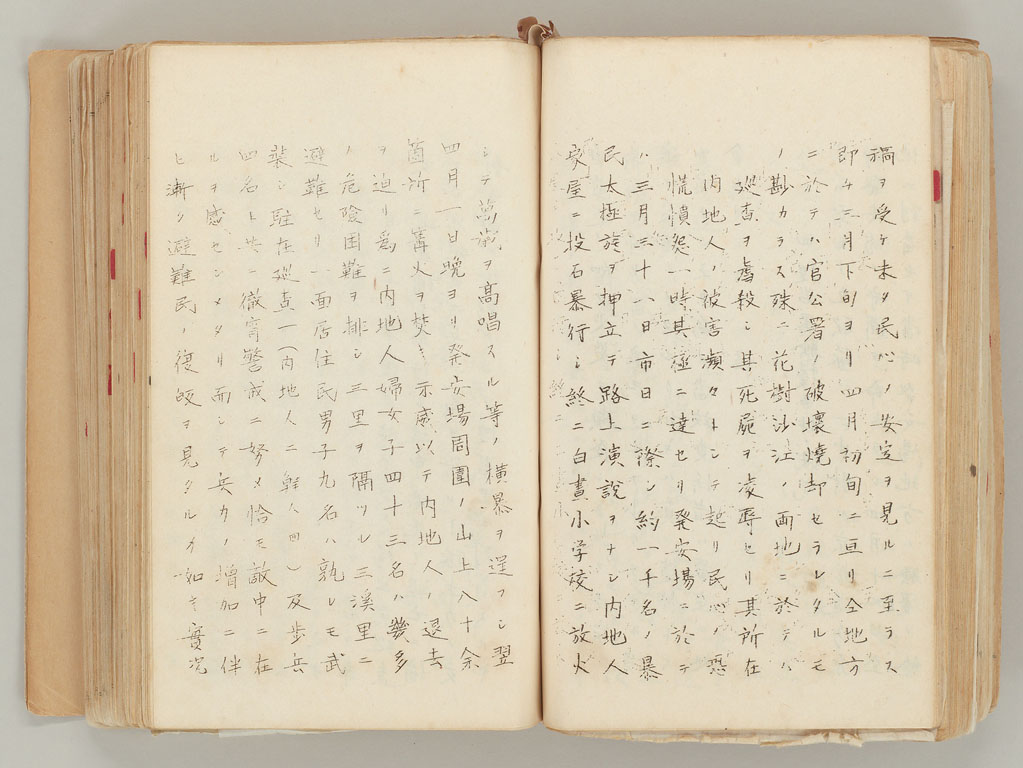 禍ヲ受ケ未タ民心ノ安定ヲ見ルニ至ラス
即チ三月下旬ヨリ四月初旬ニ亘リ仝地方
ニ於テハ官公署ノ破壞燒却セラレタルモ
ノ尠カラス殊ニ花樹沙江ノ両地ニ於テハ
巡査ヲ虐殺シ其死屍ヲ凌辱セリ其所在
内地人ノ被害瀕々トシテ起リ民心ノ恐
慌憤怨一時其極ニ達セリ発安場ニ於テ
ハ三月三十八日市日ニ際シ約一千名ノ暴
民太極旗ヲ押立テ路上演説ヲナシ内地人
家屋ニ投石暴行シ終ニ白晝小学校ニ放火
シテ萬歳ヲ高唱スル等ノ横暴ヲ逞フシ翌
四月一日晩ヨリ発安場周圍ノ山上八十余
箇所ニ篝火ヲ焚キ示威以テ内地人ノ退去
ヲ迫リ為ニ内地人婦女子四十三名ハ幾多
ノ危険困難ヲ排シ三里ヲ隔ツル三溪里ニ
避難セリ一面居住民男子九名ハ孰レモ武
葉シ駐在巡査一(内地人ニ鮮人四)及歩兵
四名ト共ニ徹宵警戒ニ努メ恰モ敵中ニ在
ルヲ感セシメタリ而シテ兵力ノ増加ニ伴
ヒ漸ク避難民ノ復皈ヲ見タルカ如キ實況